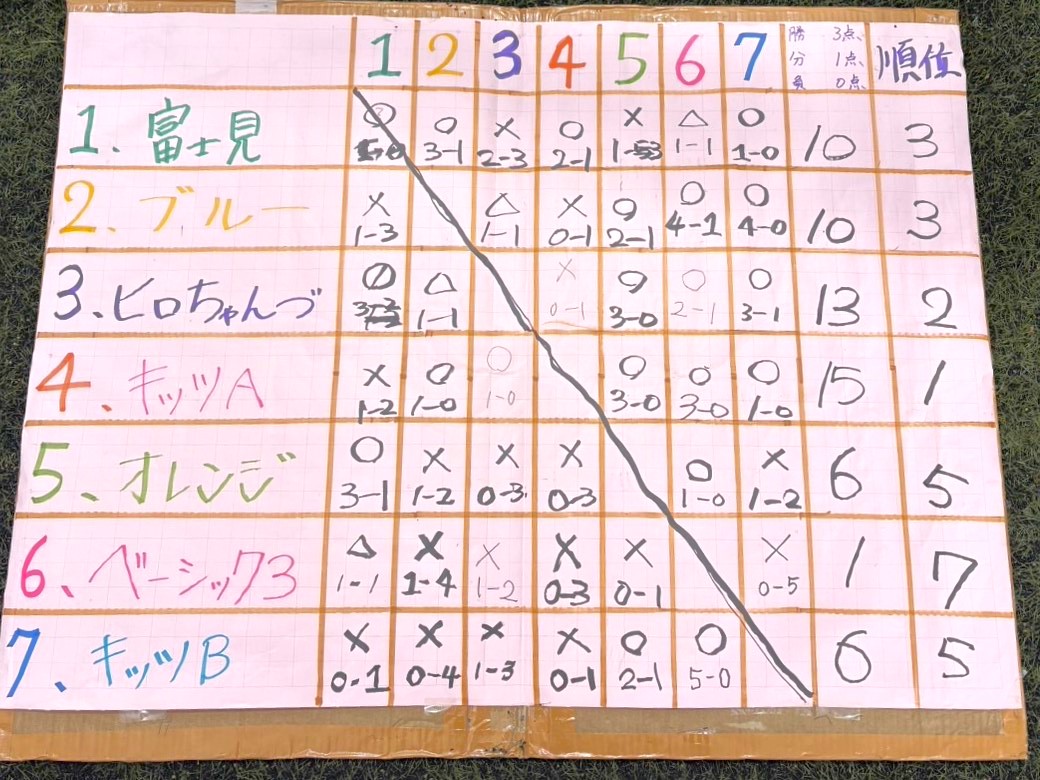 1 2 3 4 5 6 7 勝 3点、 順位
分 1点、
負 0点、
1. 富士見 ○ ○ × ○ × △ ○ 10 3
3-1 2-3 2-1 1-3 1-1 1-0
2. ブルー × △ × ○ ○ ○ 10 3
1-3 1-1 0-1 2-1 4-1 4-0
3. ヒロちゃんづ ○ △ × ○ ○ ○ 13 2
3-2 1-1 0-1 3-0 2-1 3-1
4. キッツA × ○ ○ ○ ○ ○ 15 1
1-2 1-0 1-0 3-0 3-0 1-0
5、オレンジ ○ × × × ○ × 6 5
3-1 1-2 0-3 0-3 1-0 1-2
6、ベーシック3 △ × × × × × 1 7
1-1 1-4 1-2 0-3 0-1 0-5
7、キッツB × × × × ○ ○ 6 5
0-1 0-4 1-3 0-1 2-1 5-0